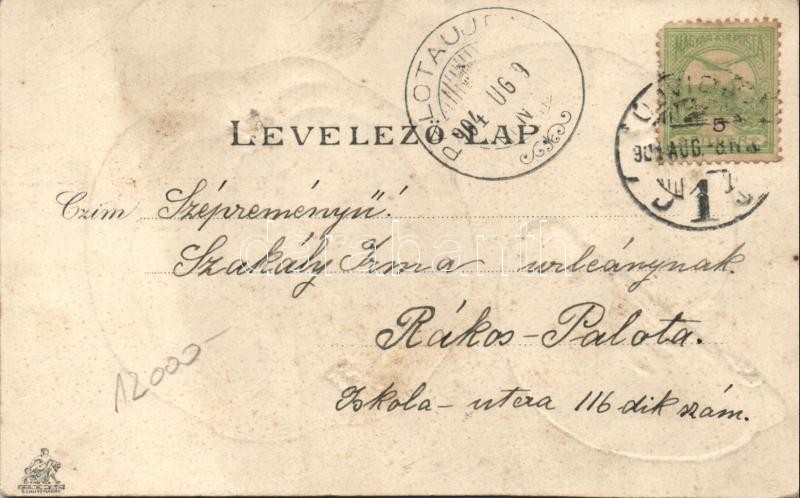 MAGYAR KIR. POSTA
5
PALOTAUJ
904 AUG 9
LEVELEZŐ LAP.
904 AUG. 8
1
Czim Szépreményű!
Szakály Irma urleánynak.
darabanth
Rákos-Palota.
Iskola-utcza 116 dik szám.
12000-